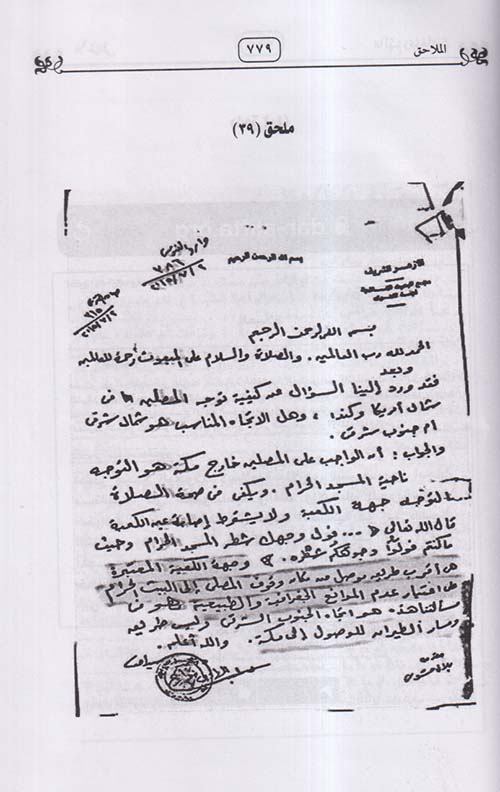 الملاحق
٧٧٩
ملحق (٣٩)
بسم الله الرحمن الرحيم
الأزهر الشريف
مجمع البحوث الإسلامية
لجنة الفتوى
بسم الله الرحمن الرحيم
الحمد لله رب العالمين . والصلاة والسلام على المبعوث رحمة للعالمين
وبعد
فقد ورد إلينا السؤال عن كيفية توجه المصلين من
شمال أمريكا وكندا ، وهل الاتجاه المناسب هو شمال شرق
أم جنوب شرق .
والجواب : أن الواجب على المصلين خارج مكة هو التوجه
ناحية المسجد الحرام . ويكفي في صحة الصلاة
التوجه جهة الكعبة ولا يشترط إصابة عين الكعبة
قال الله تعالى ﴿ ... فول وجهك شطر المسجد الحرام وحيث
ما كنتم فولوا وجوهكم شطره . ﴾ وجهة الكعبة المعتبرة
هي أقرب طريق يوصل من مكان وقوف المصلي إلى البيت الحرام
على اعتبار عدم الموانع الجغرافية والطبيعية وهو في
مسألتنا هذه هو اتجاه الجنوب الشرقي وليس طريقه
ومسار الطيران للوصول إلى مكة . والله أعلم .